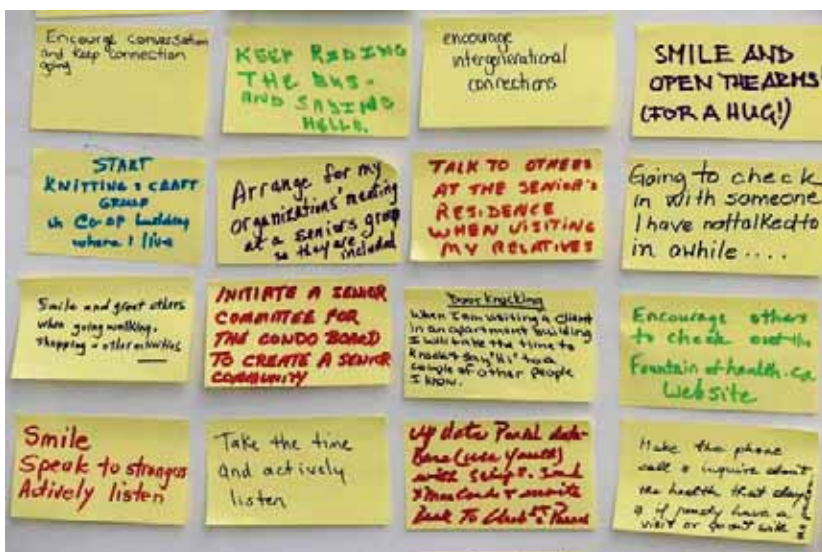 Encourge conversation
and keep connection
going
KEEP RIDING
THE BUS -
AND SAYING
HELLO.
encourage
intergenerational
connections
SMILE AND
OPEN THE ARMS
(FOR A HUG!)
START
KNITTING & CRAFT
GROUP
in Co-op building
where I live
Arrange for my
organizations' meeting
at a seniors group
so they are included
TALK TO OTHERS
AT THE SENIOR'S
RESIDENCE
WHEN VISITING
MY RELATIVES
Going to check
in with someone
I have not talked to
in awhile....
Smile and greet others
when going walking,
shopping & other activities
INITIATE A SENIOR
COMMITEE FOR
THE CONDO BOARD
TO CREATE A SENIOR
COMMUNITY
Door Knocking
When I am visiting a client
in an apartment building
I will take the time to
knock & say "Hi" to a
couple of other people
I know.
Encourage others
to check out the
Fountain of health.ca
Website
Smile
Speak to strangers
Actively listen
Take the time
and actively
listen
Up date data-
Base (use youth)
with
Back To
Make the phone
call & inquire about
the health that day
& if have a
visit or